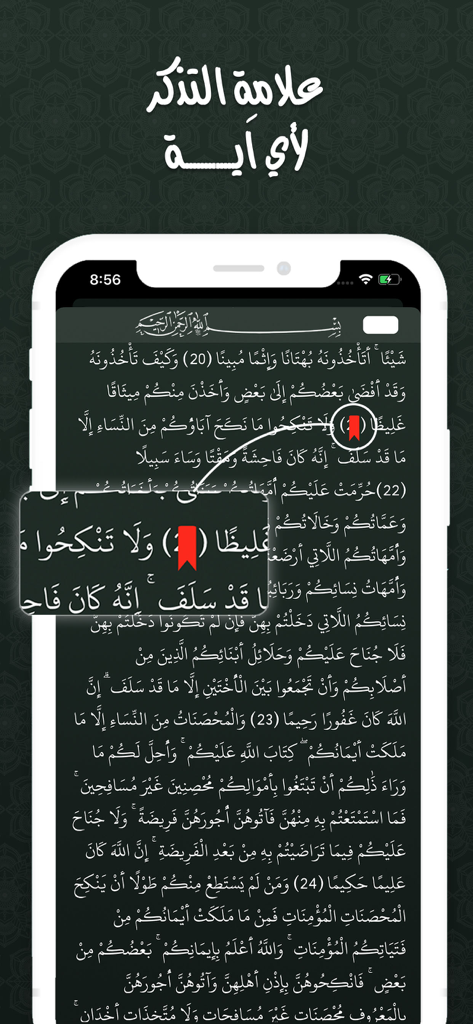 علامة التذكر
لأي آيـــة
8:56
بِسْمِ اللَّهِ الرَّحْمَٰنِ الرَّحِيمِ
شَيْئًا ۚ أَتَأْخُذُونَهُ بُهْتَانًا وَإِثْمًا مُبِينًا (20) وَكَيْفَ تَأْخُذُونَهُ
وَقَدْ أَفْضَىٰ بَعْضُكُمْ إِلَىٰ بَعْضٍ وَأَخَذْنَ مِنْكُمْ مِيثَاقًا
غَلِيظًا ( ) وَلَا تَنْكِحُوا مَا نَكَحَ آبَاؤُكُمْ مِنَ النِّسَاءِ إِلَّا
مَا قَدْ سَلَفَ ۚ إِنَّهُ كَانَ فَاحِشَةً وَمَقْتًا وَسَاءَ سَبِيلًا
(22) حُرِّمَتْ عَلَيْكُمْ
وَعَمَّاتُكُمْ وَخَالَاتُكُمْ
وَأُمَّهَاتُكُمُ اللَّاتِي
وَأُمَّهَاتُ نِسَائِكُمْ
نِسَائِكُمُ اللَّاتِي دَخَلْتُمْ بِهِنَّ فَإِنْ لَمْ تَكُونُوا دَخَلْتُمْ بِهِنَّ
غَلِيظًا ( ) وَلَا تَنْكِحُوا
قَدْ سَلَفَ ۚ إِنَّهُ كَانَ
فَلَا جُنَاحَ عَلَيْكُمْ وَحَلَائِلُ أَبْنَائِكُمُ الَّذِينَ مِنْ
أَصْلَابِكُمْ وَأَنْ تَجْمَعُوا بَيْنَ الْأُخْتَيْنِ إِلَّا مَا قَدْ سَلَفَ ۗ إِنَّ
اللَّهَ كَانَ غَفُورًا رَحِيمًا (23) وَالْمُحْصَنَاتُ مِنَ النِّسَاءِ إِلَّا مَا
مَلَكَتْ أَيْمَانُكُمْ ۖ كِتَابَ اللَّهِ عَلَيْكُمْ ۚ وَأُحِلَّ لَكُمْ مَا
وَرَاءَ ذَٰلِكُمْ أَنْ تَبْتَغُوا بِأَمْوَالِكُمْ مُحْصِنِينَ غَيْرَ مُسَافِحِينَ ۚ
فَمَا اسْتَمْتَعْتُمْ بِهِ مِنْهُنَّ فَآتُوهُنَّ أُجُورَهُنَّ فَرِيضَةً ۚ وَلَا جُنَاحَ
عَلَيْكُمْ فِيمَا تَرَاضَيْتُمْ بِهِ مِنْ بَعْدِ الْفَرِيضَةِ ۚ إِنَّ اللَّهَ كَانَ
عَلِيمًا حَكِيمًا (24) وَمَنْ لَمْ يَسْتَطِعْ مِنْكُمْ طَوْلًا أَنْ يَنْكِحَ
الْمُحْصَنَاتِ الْمُؤْمِنَاتِ فَمِنْ مَا مَلَكَتْ أَيْمَانُكُمْ مِنْ
فَتَيَاتِكُمُ الْمُؤْمِنَاتِ ۚ وَاللَّهُ أَعْلَمُ بِإِيمَانِكُمْ ۚ بَعْضُكُمْ مِنْ
بَعْضٍ ۚ فَانْكِحُوهُنَّ بِإِذْنِ أَهْلِهِنَّ وَآتُوهُنَّ أُجُورَهُنَّ
بِالْمَعْرُوفِ مُحْصَنَاتٍ غَيْرَ مُسَافِحَاتٍ وَلَا مُتَّخِذَاتِ أَخْدَانٍ ۚ